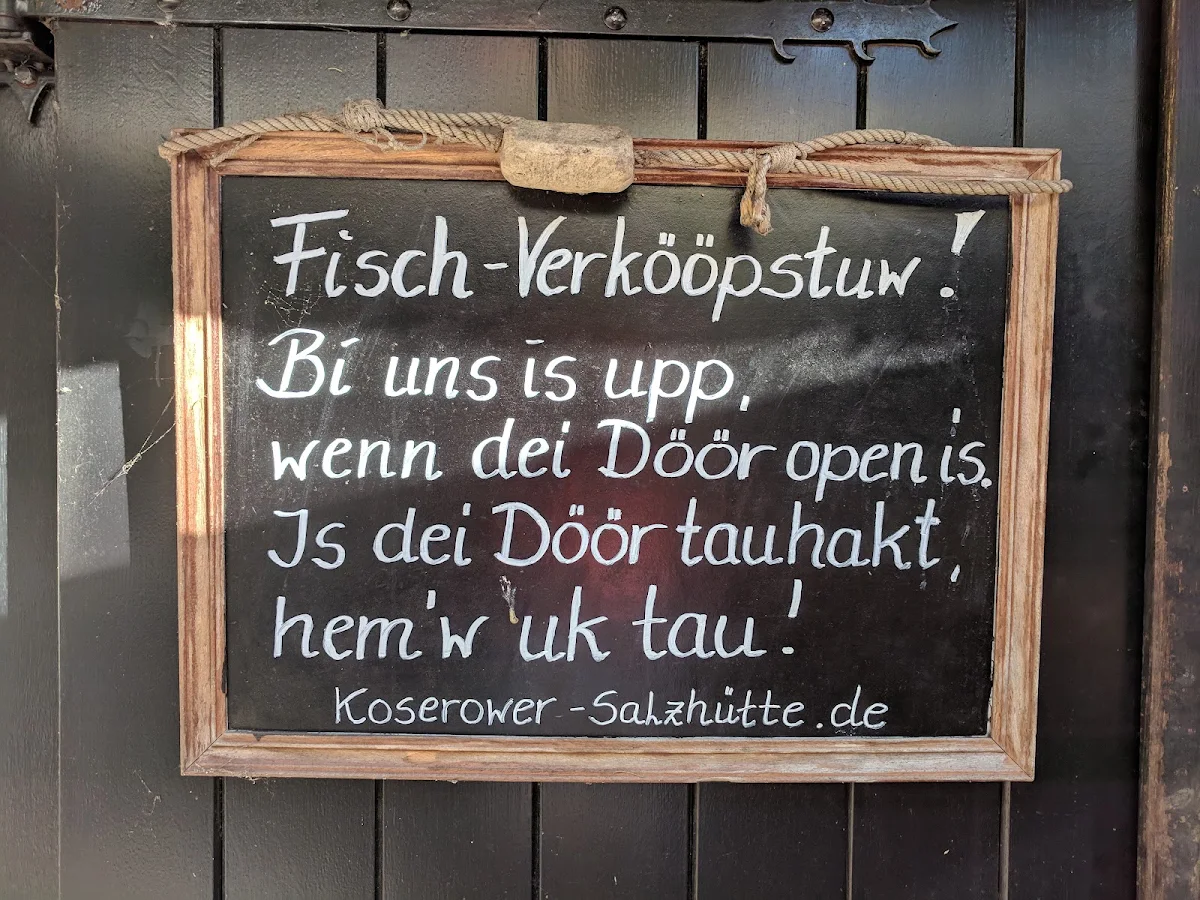 Fisch-Verkööpstuw!
Bi uns is upp,
wenn dei Döör open is.
Is dei Döör tauhakt,
hem'w uk tau!
Koserower-Salzhütte.de